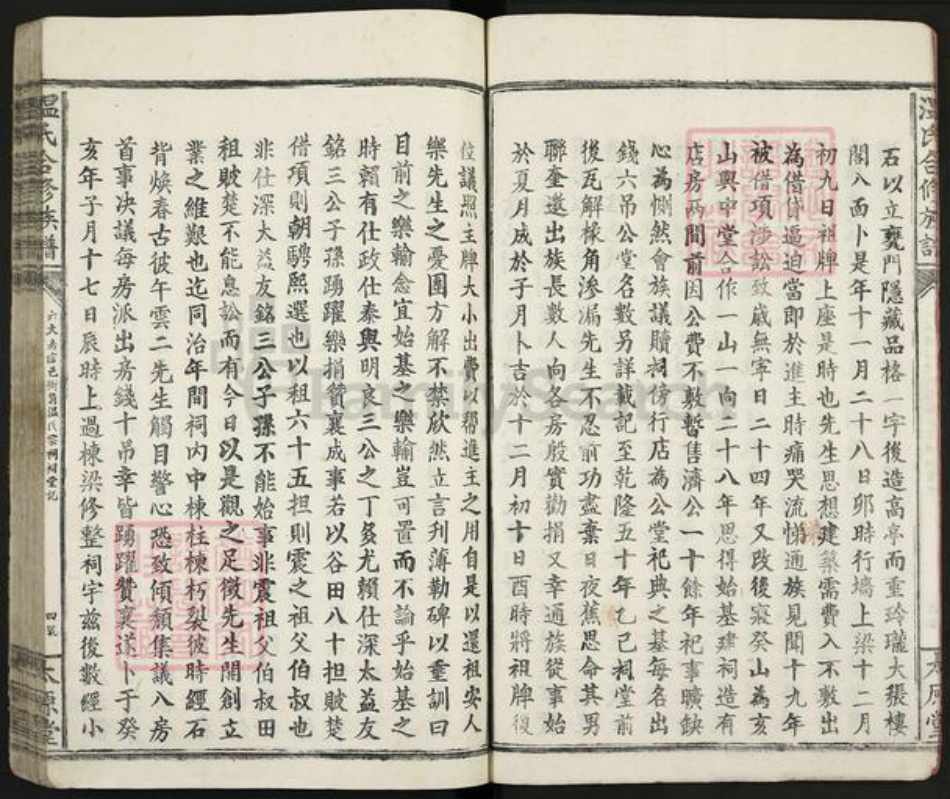 石以立甕門隱藏品格一字後造高亭而重玲瓏大張樓
閣八面卜是年十一月二十八日卯時行墻上梁十二月
初九日祖牌上座是時也先生思想建築需費入不敷出
為借貸逼迫當即於進主時痛哭流悌通族見聞十九年
被借項涉訟致歲無寧日二十四年又改後寢癸山為亥
山與中堂合作一山一向二十八年思得始基建祠造有
店房兩間前因公費不敷暫售濟公一十餘年祀事曠缺
心為惻然會族議贖祠傍行店為公堂祀典之基每名出
錢六吊公堂名數另詳載記至乾隆五十年乙己祠堂前
後瓦解椽角滲漏先生不忍前功盡棄日夜蕉思命其男
聯奎邀出族長數人向各房殷實勸捐又幸通族從事始
於夏月成於子月卜吉於十二月初十日酉時將祖牌復
位議照主牌大小出費以帮進主之用自是以還祖安人
樂先生之憂團方解不禁欣然立言刋薄勒碑以重訓曰
目前之樂輸念宜始基之樂輸豈可置而不論乎始基之
時賴有仕政仕泰與明良三公之丁多尤賴仕深太益友
銘三公子孫踴躍樂捐贊襄成事若以谷田八十担賍楚
借項則朝騁熙選也以租六十五担則震之祖父伯叔也
非仕深大益友銘三公子孫不能始事非震祖父伯叔田
租賍楚不能息訟而有今日以是觀之足徵先生開創立
業之維艱也迄同治年間祠内中棟柱棟朽裂彼時經石
背煥春古彼午雲二先生觸目警心恐致傾頹集議八房
首事决議每房派出房錢十吊幸皆踴躍贊襄遂卜于癸
亥年子月十七日辰時上過棟梁修整祠宇兹後數經小
溫氏合修族譜
溫氏宗祠祠堂記
太原堂
溫氏合修族譜
太原堂